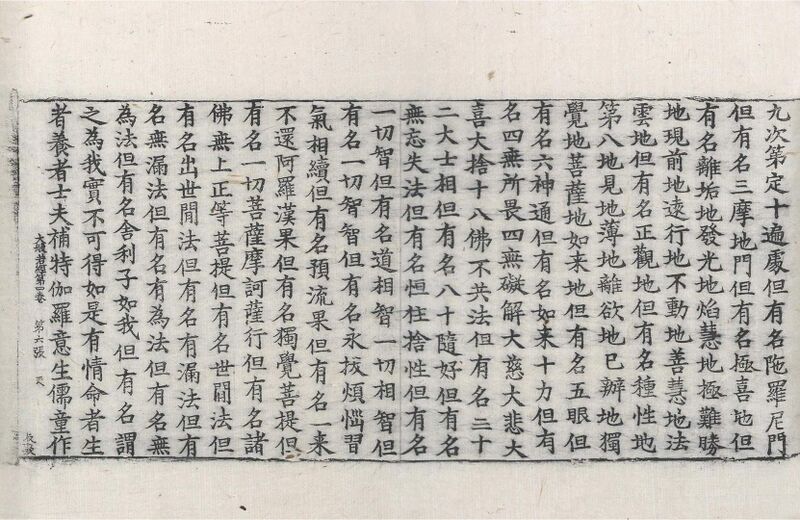 九次第定十遍處但有名陁羅尼門
但有名三摩地門但有名極喜地但
有名離垢地發光地焰慧地極難勝
地現前地遠行地不動地善慧地法
雲地但有名正觀地但有名種性地
第八地見地薄地離欲地已辦地獨
覺地菩薩地如来地但有名五眼但
有名六神通但有名如来十力但有
名四無所畏四無礙解大慈大悲大
喜大捨十八佛不共法但有名三十
二大士相但有名八十隨好但有名
無忘失法但有名恒住捨性但有名
一切智但有名道相智一切相智但
有名一切智智但有名永拔煩惱習
氣相續但有名預流果但有名一来
不還阿羅漢果但有名獨覺菩提但
有名一切菩薩摩訶薩行但有名諸
佛無上正等菩提但有名世閒法但
有名出世閒法但有名有漏法但有
名無漏法但有名有為法但有名無
為法但有名舍利子如我但有名謂
之為我實不可得如是有情命者生
者養者士夫補特伽羅意生儒童作
大般若經第四卷 第六張 天